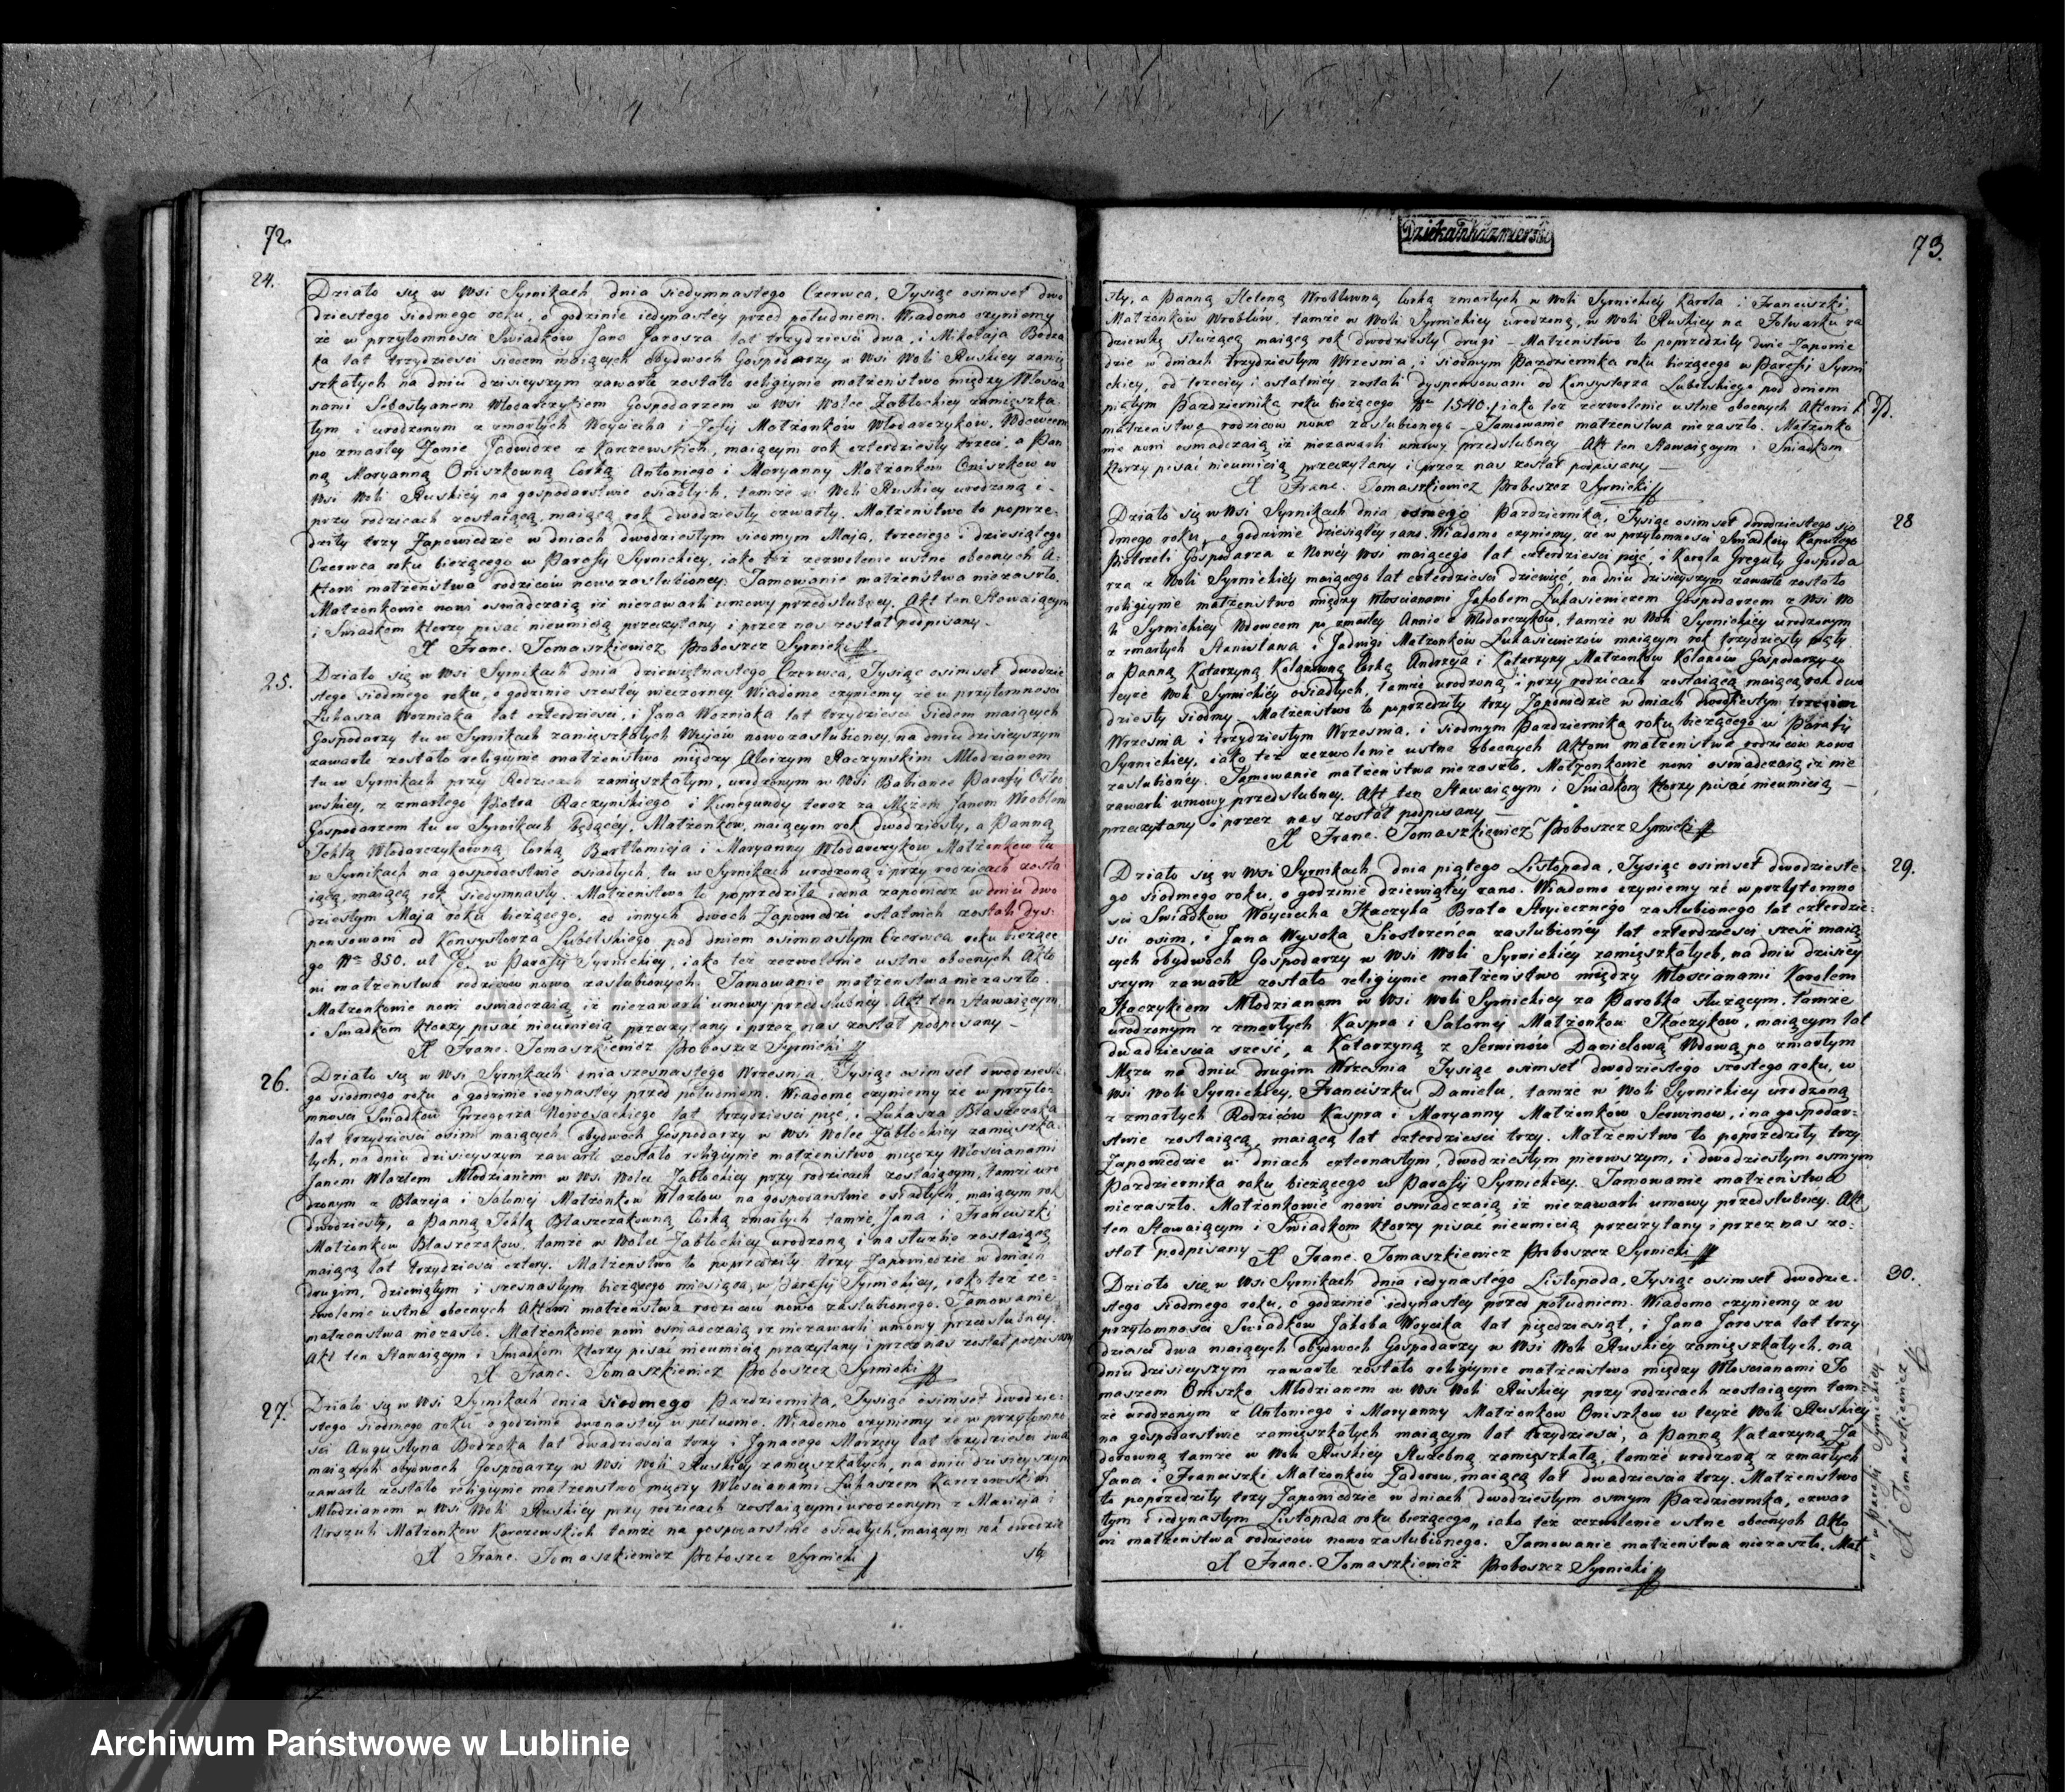 72.
24.
Działo się w Wsi Syrnikach dnia siedymnastego Czerwca, Tysiąc osimset dwa
dziestego siodmego roku, o godzinie iedynastey przed południem. Wiadomo czyniemy
że w przytomnosci Swiadków Jana Jarosza lat trzydzieści dwa, i Mikołaja
ka lat trzydziesci siedem maiących obydwoch Gospodarzy w Wsi Woli Ruskiey zamię
szkałych na dniu dzisieyszym zawarte zostało religiynie małżeństwo między Włoscia
nami Sebastyanem Włodarczykiem Gospodarzem w Wsi Wolce Zabłockiey zamięszka
łym i urodzonym z zmarłych Woyciecha i Zofij Małżonków Włodarczyków, Wdowcem
po zmarłey Żonie Jadwidze z Karczewskich, maiącym rok czterdziesty trzeci, a Pan
ną Maryanną Oniszkowną Corką Antoniego i Maryanny Małżonków Oniszkow w
Wsi Woli Ruskiey na gospodarstwie osiadłych, tamże w Woli Ruskiey urodzoną i
przy rodzicach zostaiącą, maiącą rok dwudziesty czwarty. Małżeństwo to poprze-
dziły trzy Zapowiedzie w dniach dwodziestym siodmym Maja, trzeciego i dziesiątego
Czerwca roku bieżącego w Parafij Syrnickiey, iako też zezwolenie ustne obecnych A-
ktowi małżeństwa rodziców nowozaslubioney. Tamowanie małżeństwa niezaszło.
Małżonkowie nowi oswiadczaią iż niezawarli umowy przedslubney. Akt ten Stawaiącym
i Swiadkom ktorzy pisać nieumieią przeczytany i przez nas został podpisany.
X Franc. Tomaszkiewicz Proboszcz Syrnicki
25.
Działo się w Wsi Syrnikach dnia dziewiętnastego Czerwca, Tysiąc osimset dwodzie
stego siodmego roku, o godzinie szostey wieczorney. Wiadomo czyniemy że w przytomnosci
Łukasza Wozniaka lat czterdziesci, i Jana Wozniaka lat trzydziesci siedem maiących
Gospodarzy tu w Syrnikach zamięszkałych Wujów nowozaslubioney, na dniu dzisieyszym
zawarte zostało religiynie małżeństwo między Aloizym Raczynskim Młodzianem
tu w Syrnikach przy Rodzicach zamięszkałym, urodzonym w Wsi Babianee Parafij Ostro
wskiey, z zmarłego Piotra Raczynskiego i Kunegundy teraz za Mężem Janem Wroblem
Gospodarzem tu w Syrnikach będącéy, Małżonków, maiącym rok dwodziesty, a Panną
Teklą Włodarczykowną Corką Bartłomieja i Maryanny Włodarczyków Małżonków tu
w Syrnikach na gospodarstwie osiadłych, tu w Syrnikach urodzoną i przy rodzicach zosta
iącą, maiącą rok siedymnasty. Małżeństwo to poprzedziła iedna zapowiedz w dniu dwo
dziestym Maja roku bieżącego, od innych dwoch Zapowiedzi ostatnich zostali dys-
pensowani od Konsystorza Lubelskiego pod dniem osimnastym Czerwca roku bieżące
go Nro 850. w Parafij Syrnickiey, iako też zezwolenie ustne obecnych Akto
wi małżeństwa rodziców nowo zaslubionych. Tamowanie małżeństwa niezaszło.
Małżonkowie nowi oswiadczaią iż niezawarli umowy przedslubney. Akt ten Stawaiącym,
i Swiadkom ktorzy pisać nieumieią przeczytany i przez nas został podpisany
X Franc. Tomaszkiewicz Proboszcz Syrnicki
26.
Działo się w Wsi Syrnikach dnia szesnastego Wrzesnia, Tysiąc osimset dwodzieste
go siodmego roku o godzinie iedynastey przed południem. Wiadomo czyniemy że w przyto-
mnosci Swiadkow Grzegorza Nowosackiego lat trzydziesci pięć, i Łukasza Błaszczaka
lat trzydziesci osim maiących obydwoch Gospodarzy w Wsi Wolce Zabłockiey zamięszka
łych, na dniu dzisieyszym zawarte zostało religiynie małżeństwo między Włoscianami
Janem Wlazłem Młodzianem w Wsi Wolce Zabłockiey przy rodzicach zostaiącym, tamże uro
dzonym z Błażeja i Salomej Małżonków Wlazłow na gospodarstwie osiadłych, maiącym rok
dwodziesty, a Panną Teklą Błaszczakowną Corką zmarłych tamże Jana i Franciszki
Małżonków Błaszczaków, tamże w Wolce Zabłockiey urodzoną i na służbie zostaiącą
maiącą lat trzydziesci cztery. Małżeństwo to poprzedziły trzy Zapowiedzie w dniach
drugim, dziewiątym i szesnastym bieżącego miesiąca, w Parafij Syrnickiey, iako też ze-
zwolenie ustne obecnych Aktowi małżeństwa rodziców nowo zaslubionego. Tamowanie
małżeństwa niezaszło. Małżonkowie nowi oswiadczaią iż niezawarli umowy przedslubney.
Akt ten Stawaiącym i Swiadkom ktorzy pisać nieumieią przeczytany i przez nas został podpisany
X Franc. Tomaszkiewicz Proboszcz Syrnicki
27.
Działo się w Wsi Syrnikach dnia siodmego Pazdziernika, Tysiąc osimset dwodzie-
stego siodmego roku o godzinie dwonastey w południe. Wiadomo czyniemy że w przytomno
sci Augustyna Bodzaka lat dwadziescia trzy i Ignacego Marzęcy lat trzydziesci dwa
maiących obydwoch Gospodarzy w Wsi Woli Ruskiey zamięszkałych, na dniu dzisieyszym
zawarte zostało religiynie małżenstwo między Włoscianami Łukaszem Karczewskim
Młodzianem w Wsi Woli Ruskiéy przy rodzicach zostaiącymi urodzonym z Macieja i
Urszuli Małżonków Karczewskich tamże na gospodarstwie osiadłych, maiącym rok dwodzie
X Franc. Tomaszkiewicz Proboszcz Syrnicki
sty
Dziekan Kazmierski
73.
sty, a Panną Heleną Wroblowną Corką zmarłych w Woli Syrnickiéy Karola i Franciszki
Małżonków Wroblów, tamże w Woli Syrnickiey urodzoną, w Woli Ruskiey na Folwarku za
dziewkę służącą maiącą rok dwodziesty drugi - Małżenstwo to poprzedziły dwie Zapowie
dzie w dniach trzydziestym Wrzesnia, i siodmym Pazdziernika roku bieżącego w Parafij Syrni
ckiey, od trzeciey i ostatniey zostali dyspensowani od Konsystorza Lubelskiego pod dniem
piątym Pazdziernika roku bieżącego Nro 1540. iako też zezwolenie ustne obecnych Aktowi
małżenstwa rodziców nowo zaslubionego - Tamowanie małżenstwa niezaszło. Małżonko
wie nowi oswiadczaią iż niezawarli umowy przedslubney - Akt ten Stawaiącym i Swiadkom
ktorzy pisać nieumieią przeczytany i przez nas został podpisany -
X Franc. Tomaszkiewicz Proboszcz Syrnicki
28
Działo się w Wsi Syrnikach dnia osmego Pazdziernika, Tysiąc osimset dwodziestego sio
dmego roku, o godzinie dziesiątéy rano. Wiadomo czyniemy, że w przytomności Swiadków
Gospodarza z Nowéy Wsi maiącego lat czterdziesci pięć, i Karola Greguły Gospoda
rza z Woli Syrnickiéy maiącego lat czterdziesci dziewięć, na dniu dzisieyszym zawarte zostało
religiynie małżenstwo między Włoscianami Jakobem Łukasiewiczem Gospodarzem z Wsi Wo
li Syrnickiey Wdowcem po zmarłey Annie z Włodarczyków, tamże w Woli Syrnickiey urodzonym
z zmarłych Stanisława i Jadwigi Małżonków Łukasiewiczów maiącym rok trzydziesty piąty
a Panną Katarzyną Kolanowną Corką Andrzeja i Katarzyny Małżonków Kolanów Gospodarzy w
teyże Woli Syrnickiéy osiadłych, tamże urodzoną i przy rodzicach zostaiącą maiącą rok dwo
dziesty siodmy. Małżeństwo to poprzedziły trzy Zapowiedzie w dniach dwodziestym trzecim
Wrzesnia i trzydziestym Wrzesnia, i siodmym Pazdziernika roku bieżącego w Parafij
Syrnickiey, iako też zezwolenie ustne obecnych Aktowi małżenstwa rodziców nowo
zaslubioney. Tamowanie małżeństwa niezaszło. Małżonkowie nowi oswiadczaią iż nie
zawarli umowy przedslubney. Akt ten Stawaiącym i Swiadkom ktorzy pisać nieumieią -
przeczytany i przez nas został podpisany -
X Franc. Tomaszkiewicz Proboszcz Syrnicki
29.
Działo się w Wsi Syrnikach, dnia piątego Listopada, Tysiąc osimset dwodzieste-
go siodmego roku, o godzinie dziewiątey rano. Wiadomo czyniemy że w przytomno
sci Swiadków Woyciecha Tkaczyka Brata Stryiecznego zaslubionego lat czterdzie-
sci osim, i Jana Wysoka Siostrzeńca zaslubionéy lat czterdziesci sześć maią
cych obydwoch Gospodarzy w Wsi Woli Syrnickiéy zamięszkałych, na dniu dzisiey
szym zawarte zostało religiynie małżeństwo między Włoscianami Karolem
Tkaczykiem Młodzianem w Wsi Woli Syrnickiey za Parobka służącym, tamże
urodzonym z zmarłych Kaspra i Salomej Małżonków Tkaczyków, maiącym lat
dwadziescia sześć, a Katarzyną z Serwinów Danielową Wdową po zmarłym
Mężu na dniu drugim Wrzesnia Tysiąc osimset dwodziestego szostego roku, w
Wsi Woli Syrnickiey, Franciszku Danielu, tamże w Woli Syrnickiey urodzoną
z zmarłych Rodziców Kaspra i Maryanny Małżonków Serwinow, i na gospodar-
stwie zostaiącą, maiącą lat czterdziesci trzy. Małżeństwo to poprzedziły trzy
Zapowiedzie w dniach czternastym, dwodziestym pierwszym, i dwodziestym osmym
Pazdziernika roku bieżącego w Parafij Syrnickiey. Tamowanie małżeństwa
niezaszło. Małżonkowie nowi oswiadczaią iż niezawarli umowy przedslubney. Akt
ten Stawaiącym i Swiadkom ktorzy pisać nieumieią przeczytany i przez nas zo-
stał podpisany - X Franc. Tomaszkiewicz Proboszcz Syrnicki
30.
Działo się w Wsi Syrnikach dnia iedynastego Listopada, Tysiąc osimset dwodzie-
stego siodmego roku, o godzinie iedynastey przed południem. Wiadomo czyniemy z w
przytomnosci Swiadków Jakoba Woycika lat pięćdziesiąt, i Jana Jarosza lat trzy
dziesci dwa maiących obydwoch Gospodarzy w Wsi Woli Ruskiéy zamięszkałych, na
dniu dzisieyszym zawarte zostało religiynie małżeństwo między Włoscianami To
maszem Oniszko Młodzianem w Wsi Woli Ruskiey przy rodzicach zostaiącym tam-
że urodzonym z Antoniego i Maryanny Małżonkow Oniszkow w teyże Woli Ruskiey
na gospodarstwie zamięszkałych maiącym lat trzydziesci, a Panną Katarzyną Za
dorowną tamże w Woli Ruskiey służebną zamięszkałą, tamże urodzoną z zmarłych
Jana i Franciszki Małżonków Zadorow, maiącą lat dwadziescia trzy. Małżeństwo
to poprzedziły trzy Zapowiedzie w dniach dwodziestym osmym Pazdziernika, czwar
tym i iedynastym Listopada roku bieżącego, iako też zezwolenie ustne obecnych Akto
wi małżeństwa rodziców nowo zaslubionego. Tamowanie małżeństwa niezaszło. Mał
X Franc. Tomaszkiewicz Proboszcz Syrnicki
w Parafij Syrnickiey -
X Tomaszkiewicz
Archiwum Państwowe w Lublinie